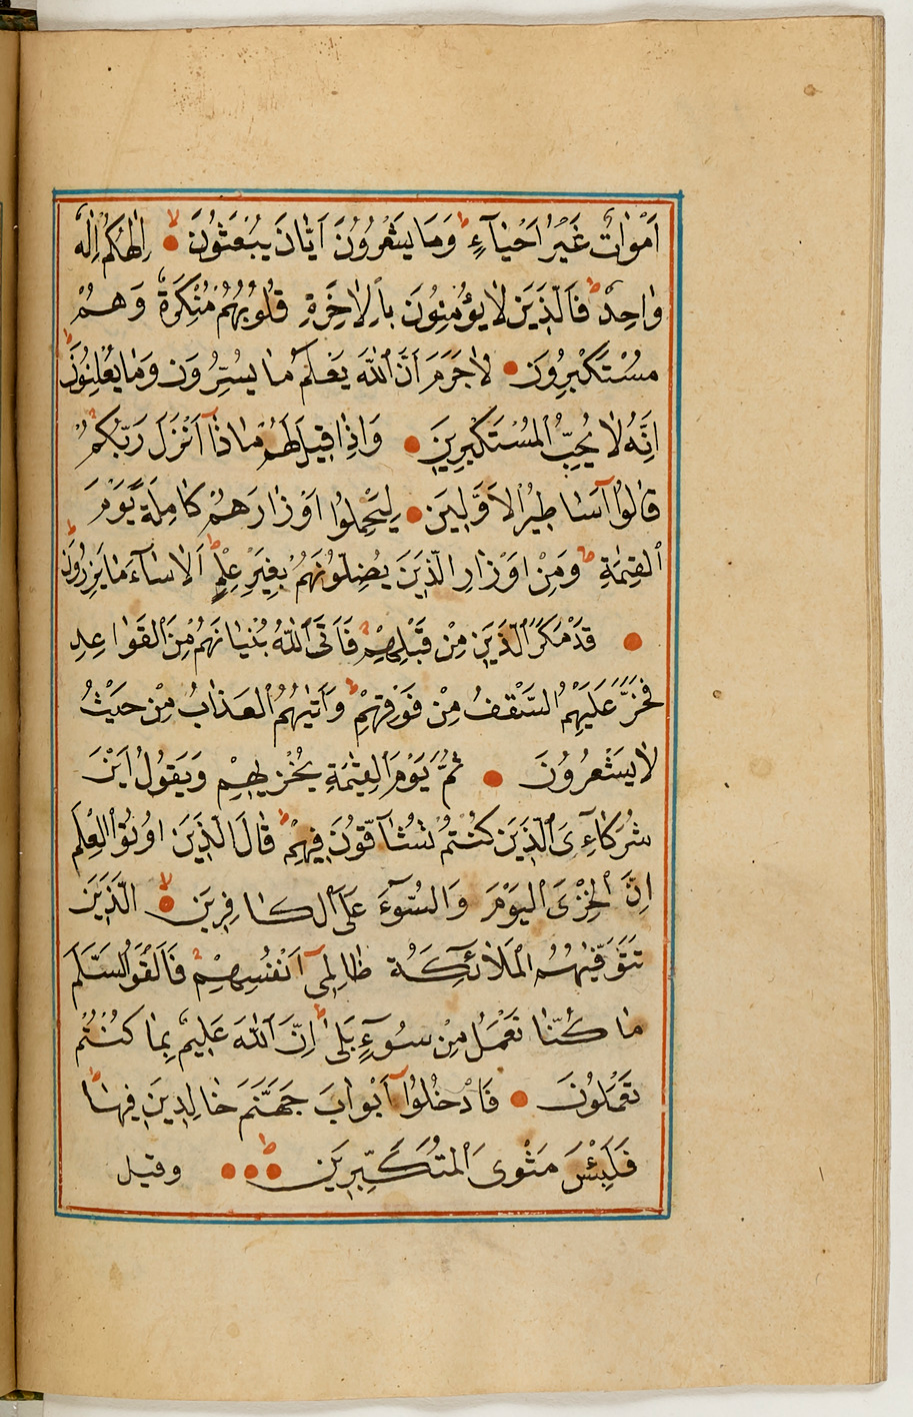 اَمْوَاتٌ غَيْرُ اَحْيَآءٍ وَمَا يَشْعُرُونَ اَيَّانَ يُبْعَثُونَ اِلٰهُكُمْ اِلٰهٌ
وَاحِدٌ فَالَّذِينَ لَا يُؤْمِنُونَ بِالْاٰخِرَةِ قُلُوبُهُمْ مُنْكِرَةٌ وَهُمْ
مُسْتَكْبِرُونَ لَا جَرَمَ اَنَّ ٱللّٰهَ يَعْلَمُ مَا يُسِرُّونَ وَمَا يُعْلِنُونَ
اِنَّهُ لَا يُحِبُّ الْمُسْتَكْبِرِينَ وَاِذَا قِيلَ لَهُمْ مَاذَآ اَنْزَلَ رَبُّكُمْ
قَالُوٓا اَسَاطِيرُ الْاَوَّلِينَ لِيَحْمِلُوا اَوْزَارَهُمْ كَامِلَةً يَوْمَ
ٱلْقِيٰمَةِ وَمِنْ اَوْزَارِ الَّذِينَ يُضِلُّونَهُمْ بِغَيْرِ عِلْمٍ اَلَا سَآءَ مَا يَزِرُونَ
قَدْ مَكَرَ الَّذِينَ مِنْ قَبْلِهِمْ فَاَتَى ٱللّٰهُ بُنْيَانَهُمْ مِنَ الْقَوَاعِدِ
فَخَرَّ عَلَيْهِمُ السَّقْفُ مِنْ فَوْقِهِمْ وَاَتٰيهُمُ الْعَذَابُ مِنْ حَيْثُ
لَا يَشْعُرُونَ ثُمَّ يَوْمَ الْقِيٰمَةِ يُخْزِيهِمْ وَيَقُولُ اَيْنَ
شُرَكَاءِىَ الَّذِينَ كُنْتُمْ تُشَآقُّونَ فِيهِمْ قَالَ الَّذِينَ اُوتُوا الْعِلْمَ
اِنَّ الْخِزْىَ الْيَوْمَ وَالسُّوٓءَ عَلَى الْكَافِرِينَ الَّذِينَ
تَتَوَفّٰيهُمُ الْمَلٰٓئِكَةُ ظَالِمِىٓ اَنْفُسِهِمْ فَاَلْقَوُا السَّلَمَ
مَا كُنَّا نَعْمَلُ مِنْ سُوٓءٍ بَلٰى اِنَّ ٱللّٰهَ عَلِيمٌ بِمَا كُنْتُمْ
تَعْمَلُونَ فَادْخُلُوٓا اَبْوَابَ جَهَنَّمَ خَالِدِينَ فِيهَا
فَلَبِئْسَ مَثْوَى الْمُتَكَبِّرِينَ وقيل